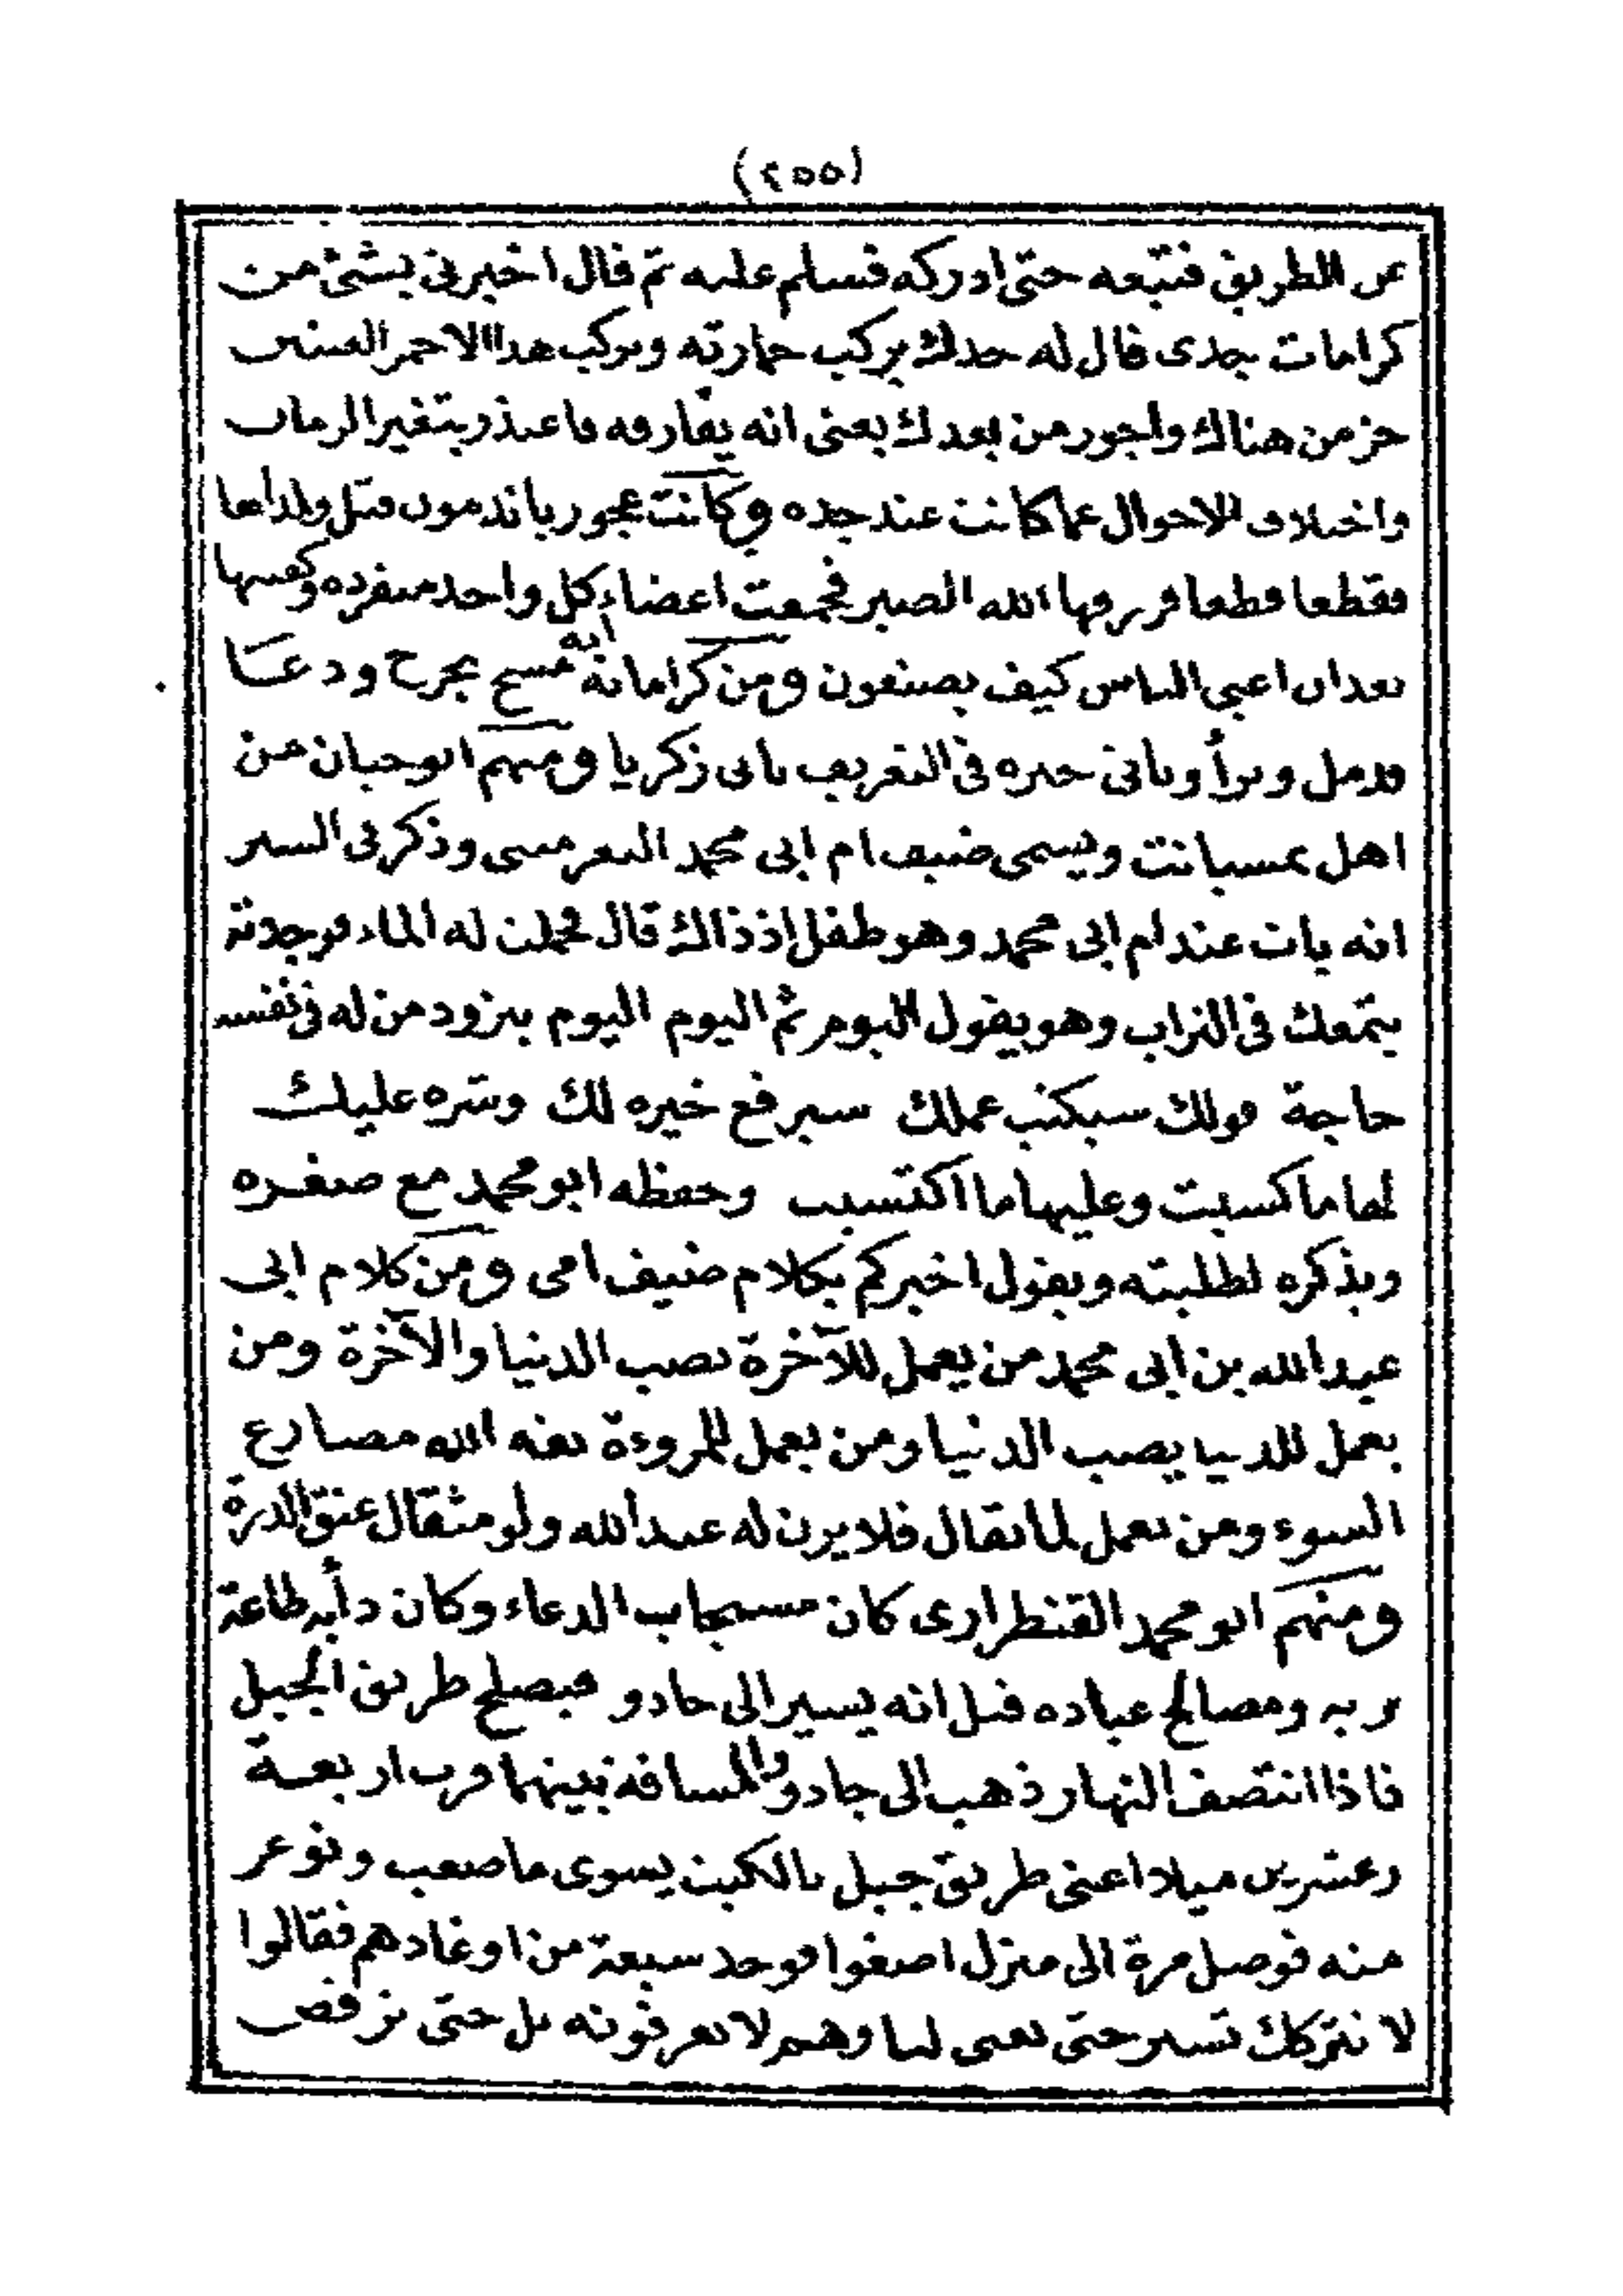 (٢٥٥)
عن الطريق فتبعه حتى ادركه فسلم عليه ثم قال اخبرنى بشئ من
كرامات جدى قال له جدك يركب حمارته ويركب هذا الاحمر
حز من هناك واجور من بعدك يعنى انه يفارقه فاعتذر بتغير الزمان
واختلاف الاحوال عما كانت عند جده وكانت عجوز باندمون قتل ولداها
فقطعا قطعا فرزقها الله الصبر فجمعت اعضاء كل واحد منفرده وكفنتها
بعد ان اعيى الناس كيف يصنعون ومن كراماته انه مسح بجرح ودعا
ودمل وبرأ وياتى خبره فى التعريف بابى زكريا ومنهم ابو حيان من
اهل تمسبانت ويسمى ضيف ام ابى محمد وذكر فى السير
انه بات عند ام ابى محمد وهو طفل اذ ذاك قال فحملت له الماء فوجدته
يتمعك فى التراب وهو يقول اليوم ثم اليوم اليوم يتزود من له فى نفسه
حاجة قولك سيكتب عملك سيرفع خيره لك وشره عليك
لها ما كسبت وعليها ما اكتسبت وحفظه ابو محمد مع صغره
ويذكره لطلبته ويقول اخبركم بكلام ضيف امى ومن كلام ابى
عبد الله بن ابى محمد من يعمل للآخرة يصب الدنيا والآخرة ومن
يعمل للدنيا يصب الدنيا ومن يعمل للمروءة يقه الله مصارع
السوء ومن يعمل لما يقال فلا يرن له عبد الله ولو مثقال عنق الذرة
ومنهم ابو محمد القنطرارى كان مستجاب الدعاء وكان دأبه طاعة
ربه ومصالح عباده قيل انه يسير الى جادو فيصلح طريق الجبل
فاذا انتصف النهار ذهب الى جادو والمسافة بينهما قرب اربعة
وعشرين ميلا اعنى طريق جبل يسوى ما صعب وتوعر
منه فوصل مرة الى منزل اصغوا فوجد سبعة من اوغادهم فقالوا
لا نتركك تسير حتى تغنى لنا وهم لا يعرفونه بل حتى ترقص